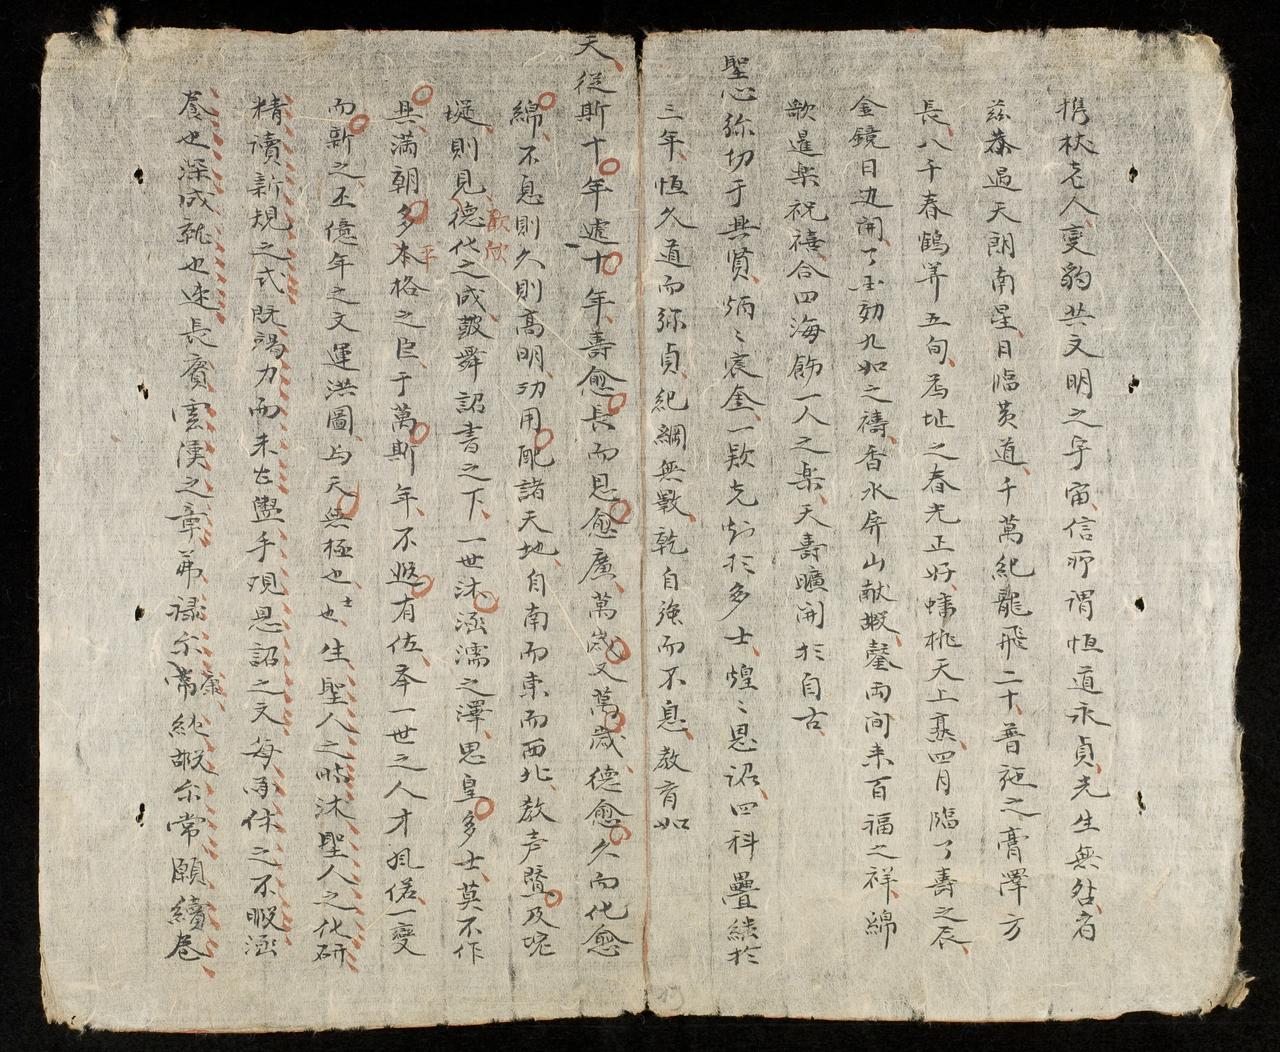 携杖老人变豹共文明之字宙信所謂恒道永貞先生無咎者
兹恭遇天朗南星日臨黄道千萬紀龍飛二十普施之膏澤方
長八千春鶴筭五旬為址之春光正好蟠桃天上熹四月臨了壽之辰
金鏡日边開了玉効九如之禱香水屏山献嘏罄両间来百福之祥綿
歌暹樂祝禧合四海飾一人之楽天壽曠開於自古
聖心弥切于興賢炳〻宸金一欵克對於多士煌〻恩詔四科疊綘於
三年恒久道而弥貞紀綱無斁乾自強而不息教育如
天從斯十年處十年壽愈長而恩愈廣萬歲又萬歲德愈久而化愈
綿不息則久則髙明功用配諸天地自南而東而西北教声曁及埦
埏則見德化之成鼓舞詔書之下一世沐涵濡之澤思皇多士莫不作
歌欣
興满朝多本格之臣于萬斯年不遐有佐夲一世之人才風偌一变
平
而新之丕億年之文運洪圖与天無極也士也生聖人之時沐聖人之化研
精讀新規之式既竭力而未𠮷盥手观恩詔之文每承休之不暇涵
養也深成就也速長賡雲漢之章茀禄尓常純嘏尓常願續卷
康